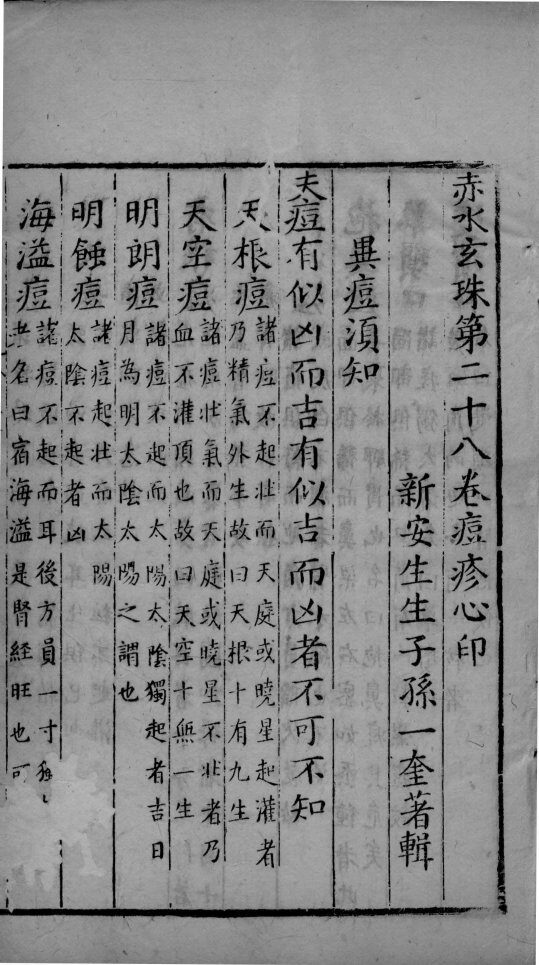 赤水玄珠第二十八卷痘疹心印
新安生生子孫一奎著輯
異痘須知
夫痘有似凶而吉有似吉而凶者不可不知
天根痘
諸痘不起壯而天庭或曉星起灌者
乃精氣外生故曰天根十有九生
天空痘
諸痘壯氣而天庭或曉星不壯者乃
血不灌頂也故曰天空十無一生
明朗痘
諸痘不起而太陽太陰獨起者吉日
月為明太陰太陽之謂也
明蝕痘
諸痘起壯而太陽
太陰不起者凶
海溢痘
諸痘不起而耳後方員一寸
者名曰宿海溢是腎經旺也可